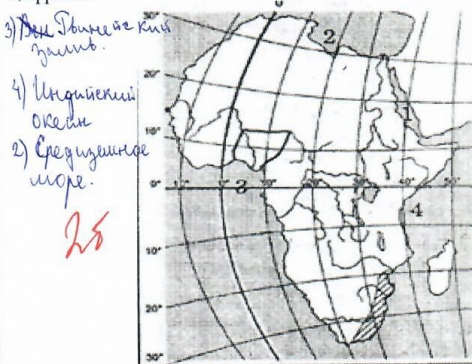 3) Гвинейский
залив.
4) Индийский
океан
2) Средиземное
море.
2б
0
30°
20°
10°
0°
10°
20°
30°
10°
0°
10°
40°
50°
1
2
3
4